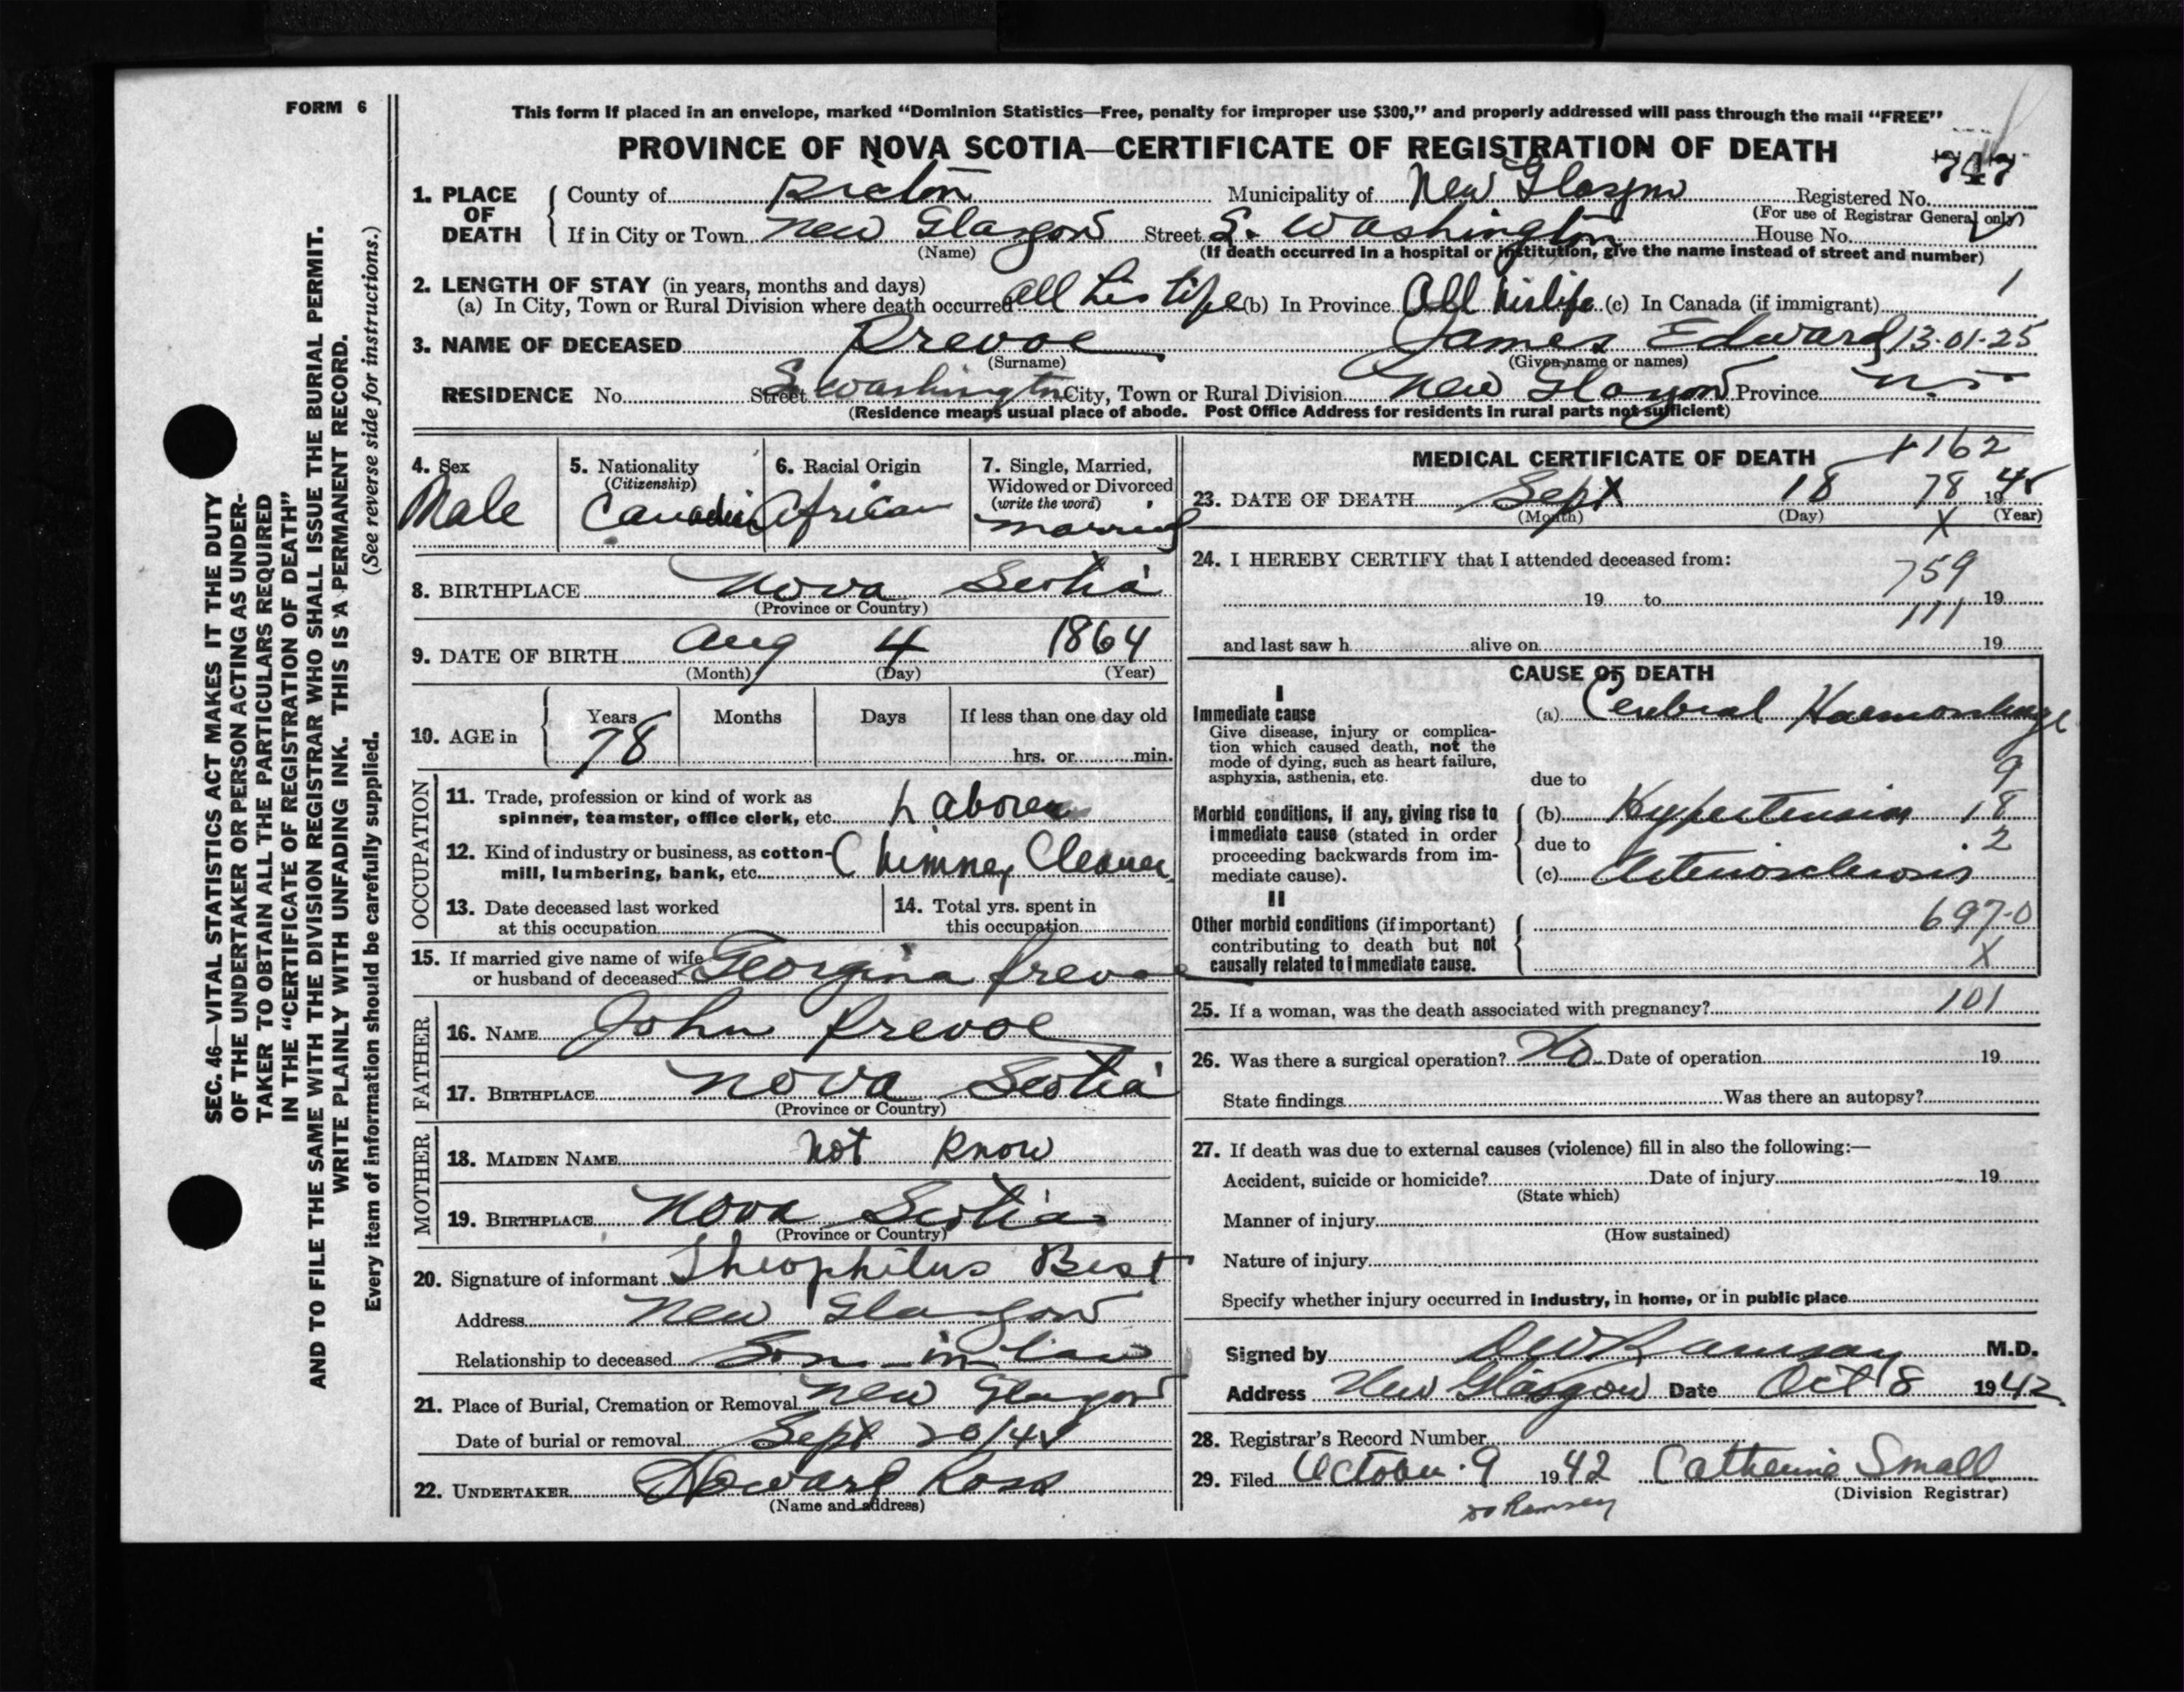 FORM 6
SEC. 46—VITAL STATISTICS ACT MAKES IT THE DUTY
OF THE UNDERTAKER OR PERSON ACTING AS UNDER-
TAKER TO OBTAIN ALL THE PARTICULARS REQUIRED
IN THE "CERTIFICATE OF REGISTRATION OF DEATH"
AND TO FILE THE SAME WITH THE DIVISION REGISTRAR WHO SHALL ISSUE THE BURIAL PERMIT.
WRITE PLAINLY WITH UNFADING INK. THIS IS A PERMANENT RECORD.
Every item of information should be carefully supplied. (See reverse side for instructions.)
This form If placed in an envelope, marked "Dominion Statistics—Free, penalty for improper use $300," and properly addressed will pass through the mail "FREE"
PROVINCE OF NOVA SCOTIA—CERTIFICATE OF REGISTRATION OF DEATH
747
1. PLACE OF DEATH
County of Pictou Municipality of New Glasgow Registered No.
(For use of Registrar General only)
If in City or Town New Glasgow Street S. Washington House No.
(Name) (If death occurred in a hospital or institution, give the name instead of street and number)
2. LENGTH OF STAY (in years, months and days) 1
(a) In City, Town or Rural Division where death occurred all his life (b) In Province All his life (c) In Canada (if immigrant)
3. NAME OF DECEASED Prevoe James Edward 13-01-25
(Surname) (Given name or names)
RESIDENCE No. Street S. Washington City, Town or Rural Division New Glasgow Province N.S.
(Residence means usual place of abode. Post Office Address for residents in rural parts not sufficient)
4. Sex
Male
5. Nationality
(Citizenship)
Canadian
6. Racial Origin
African
7. Single, Married,
Widowed or Divorced
(write the word)
married
8. BIRTHPLACE Nova Scotia
(Province or Country)
9. DATE OF BIRTH Aug 4 1864
(Month) (Day) (Year)
10. AGE in
Years Months Days If less than one day old
78 hrs. or min.
OCCUPATION
11. Trade, profession or kind of work as
spinner, teamster, office clerk, etc. Laborer
12. Kind of industry or business, as cotton-
mill, lumbering, bank, etc. Chimney Cleaner
13. Date deceased last worked
at this occupation
14. Total yrs. spent in
this occupation
15. If married give name of wife
or husband of deceased Georgina Prevoe
FATHER
16. NAME John Prevoe
17. BIRTHPLACE Nova Scotia
(Province or Country)
MOTHER
18. MAIDEN NAME not know
19. BIRTHPLACE Nova Scotia
(Province or Country)
20. Signature of informant Theophilus Best
Address New Glasgow
Relationship to deceased Son-in-law
21. Place of Burial, Cremation or Removal New Glasgow
Date of burial or removal Sept 20/42
22. UNDERTAKER Howard Ross
(Name and address)
MEDICAL CERTIFICATE OF DEATH
+162
23. DATE OF DEATH Sept 18 78 1942
(Month) (Day) X (Year)
24. I HEREBY CERTIFY that I attended deceased from:
759
19 to 19
111
and last saw h alive on 19
CAUSE OF DEATH
I
Immediate cause
Give disease, injury or complica-
tion which caused death, not the
mode of dying, such as heart failure,
asphyxia, asthenia, etc.
(a) Cerebral Haemorrhage
9
due to
Morbid conditions, if any, giving rise to
immediate cause (stated in order
proceeding backwards from im-
mediate cause).
(b) Hypertension 18
due to .2
(c) Arteriosclerosis
II
Other morbid conditions (if important)
contributing to death but not
causally related to immediate cause.
697-0
X
25. If a woman, was the death associated with pregnancy? 101
26. Was there a surgical operation? No Date of operation 19
State findings Was there an autopsy?
27. If death was due to external causes (violence) fill in also the following:—
Accident, suicide or homicide? Date of injury 19
(State which)
Manner of injury
(How sustained)
Nature of injury
Specify whether injury occurred in Industry, in home, or in public place
Signed by DW Ramsay M.D.
Address New Glasgow Date Oct 8 1942
28. Registrar's Record Number
29. Filed October 9 1942 Catherine Small
(Division Registrar)
Ramsey